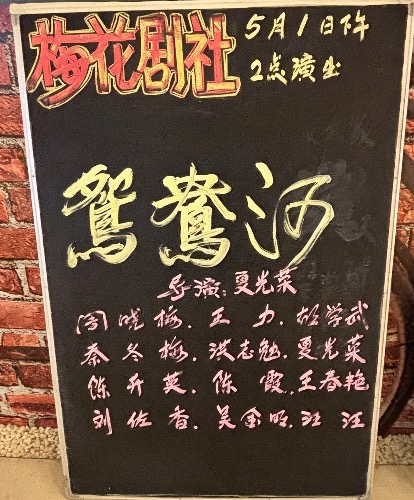 梅花剧社
5月1日下午
2点演出
鸳鸯河
导演:夏光菜
周晓梅.王力.胡学武
秦冬梅.洪志勉.夏光菜
陈开英.陈霞.王春艳
刘佐香.吴金明.汪汪